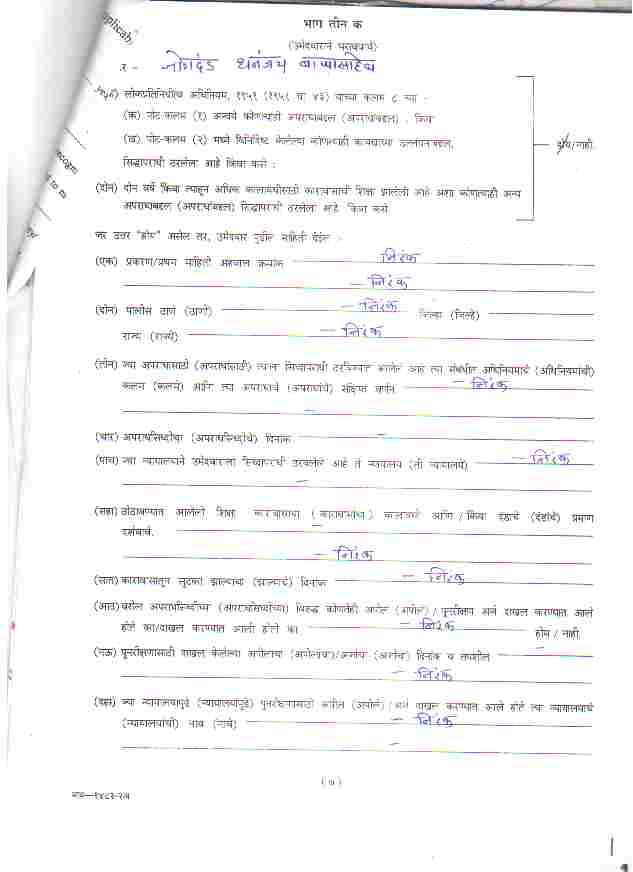 भाग तीन क
(उमेदवाराने भरावयाचे)
१ - जोगदंड धनंजय बाप्पासाहेब
(एक) लोकप्रतिनिधीत्व अधिनियम, १९५१ (१९५१ चा ४३) याच्या कलम ८ च्या -
(क) पोट-कलम (१) अन्वये कोणत्याही अपराधाबद्दल (अपराधांबद्दल) ; किंवा
(ख) पोट-कलम (२) मध्ये विनिर्दिष्ट केलेल्या कोणत्याही कायद्याच्या उल्लंघनाबद्दल,
सिद्धापराधी ठरलेला आहे किंवा कसे :
होय/नाही.
(दोन) दोन वर्षे किंवा त्याहून अधिक कालावधीसाठी कारावासाची शिक्षा झालेली आहे अशा कोणत्याही अन्य
अपराधाबद्दल (अपराधांबद्दल) सिद्धापराधी ठरलेला आहे किंवा कसे
जर उत्तर "होय" असेल तर, उमेदवार पुढील माहिती देईल :-
(एक) प्रकरण/प्रथम माहिती अहवाल क्रमांक निरंक
- निरंक
(दोन) पोलीस ठाणे (ठाणी) - निरंक जिल्हा (जिल्हे)
राज्य (राज्ये) - निरंक
(तीन) ज्या अपराधासाठी (अपराधांसाठी) त्याला सिध्दापराधी ठरविण्यात आलेले आहे त्या संबंधीत अधिनियमाचे (अधिनियमांची)
कलम (कलमे) आणि त्या अपराधाचे (अपराधांचे) संक्षिप्त वर्णन - निरंक
-
(चार) अपराधसिध्दीचा (अपराधसिध्दींचे) दिनांक -
(पाच) ज्या न्यायालयाने उमेदवाराला सिध्दापराधी ठरवलेले आहे ते न्यायालय (ती न्यायालये) - निरंक
-
(सहा) ठोठावण्यात आलेली शिक्षा कारावासाचा (कारावासांचा) कालावधी आणि / किंवा दंडाचे (दंडांचे) प्रमाण
दर्शवावे. -
- निरंक
(सात) कारावासातून सुटका झाल्याचा (झाल्याचे) दिनांक - निरंक
(आठ) वरील अपराधसिध्दीच्या (अपराधसिध्दींच्या) विरुद्ध कोणतेही अपील (अपीले) / पुनरीक्षण अर्ज दाखल करण्यात आले
होते का/दाखल करण्यात आली होते का - निरंक होय / नाही.
(नऊ) पुनरीक्षणासाठी दाखल केलेल्या अपीलाचा (अपीलांचा)/अर्जाचा (अर्जांचा) दिनांक व तपशील -
- निरंक
(दहा) ज्या न्यायालयापुढे (न्यायालयांपुढे) पुनरीक्षणासाठी अपील (अपीले) /अर्ज दाखल करण्यात आले होते त्या न्यायालयाचे
(न्यायालयांची) नाव (नावे) - निरंक
-